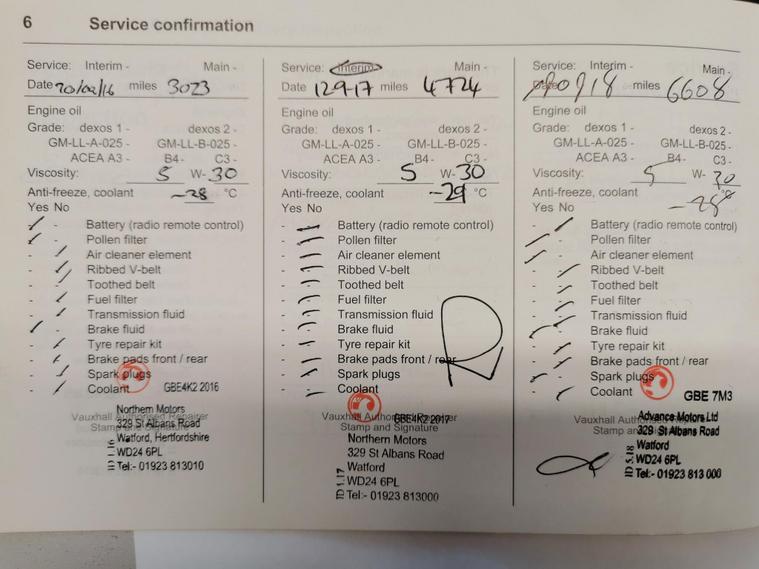 6 Service confirmation
Service: Interim - Main -
Date 20/02/16 miles 3023
Engine oil
Grade: dexos 1 - dexos 2 -
GM-LL-A-025 - GM-LL-B-025 -
ACEA A3 - B4- C3 -
Viscosity: 5 W- 30
Anti-freeze, coolant -28 °C
Yes No
- - Battery (radio remote control)
- - Pollen filter
- - Air cleaner element
- - Ribbed V-belt
- - Toothed belt
- - Fuel filter
- - Transmission fluid
- - Brake fluid
- - Tyre repair kit
- - Brake pads front / rear
- - Spark plugs
- - Coolant
GBE4K2 2016
Vauxhall Authorised Repairer
Stamp and Signature
Northern Motors
329 St Albans Road
Watford, Hertfordshire
WD24 6PL
Tel:- 01923 813010
Service: Interim - Main -
Date 12-9-17 miles 4724
Engine oil
Grade: dexos 1 - dexos 2 -
GM-LL-A-025 - GM-LL-B-025 -
ACEA A3 - B4- C3 -
Viscosity: 5 W- 30
Anti-freeze, coolant -29 °C
Yes No
- - Battery (radio remote control)
- - Pollen filter
- - Air cleaner element
- - Ribbed V-belt
- - Toothed belt
- - Fuel filter
- - Transmission fluid
- - Brake fluid
- - Tyre repair kit
- - Brake pads front / rear
- - Spark plugs
- - Coolant
GBE4K2 2017
Vauxhall Authorised Repairer
Stamp and Signature
Northern Motors
329 St Albans Road
Watford
WD24 6PL
ID 1.17
Tel:- 01923 813000
Service: Interim - Main -
Date miles 6608
Engine oil
Grade: dexos 1 - dexos 2 -
GM-LL-A-025 - GM-LL-B-025 -
ACEA A3 - B4- C3 -
Viscosity: 5 W- 30
Anti-freeze, coolant -28 °C
Yes No
- - Battery (radio remote control)
- - Pollen filter
- - Air cleaner element
- - Ribbed V-belt
- - Toothed belt
- - Fuel filter
- - Transmission fluid
- - Brake fluid
- - Tyre repair kit
- - Brake pads front / rear
- - Spark plugs
- - Coolant
GBE 7M3
Vauxhall Authorised Repairer
Stamp and Signature
Advance Motors Ltd
329 St Albans Road
Watford
WD24 6PL
ID 5.18
Tel:- 01923 813 000